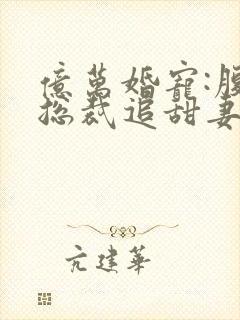 億萬婚寵:腹
總裁追甜妻
亢建華